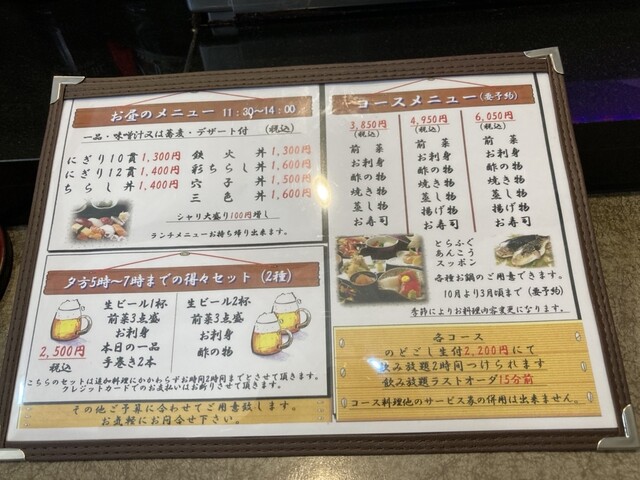 お昼のメニュー 11：30〜14：00
一品・味噌汁又は蕎麦・デザート付 (税込)
にぎり10貫 1,300円
にぎり12貫 1,400円
ちらし 1,400円
鉄火丼 1,300円
彩ちらし丼 1,600円
穴子丼 1,500円
三色丼 1,600円
シャリ大盛り100円増し
ランチメニューお持ち帰り出来ます。
夕方5時〜7時までの得々セット (2種)
生ビール1杯
前菜3点盛
お刺身
本日の一品
手巻き2本
2,500円
税込
生ビール2杯
前菜3点盛
お刺身
酢の物
こちらのセットは追加料理にかかわらずお時間2時間までとさせて頂きます。
クレジットカードでのお支払いはお断りさせて頂きます。
その他ご予算に合わせてご用意致します。
お気軽にお問合せ下さい。
コースメニュー(要予約)
3,850円
(税込)
前菜
お刺身
酢の物
焼き物
蒸し物
お寿司
4,950円
(税込)
前菜
お刺身
酢の物
焼き物
蒸し物
揚げ物
お寿司
6,050円
(税込)
前菜
お刺身
酢の物
焼き物
蒸し物
揚げ物
お寿司
とらふぐ
あんこう
スッポン
各種お鍋のご用意できます。
10月より3月頃まで (要予約)
季節によりお料理内容変更になります。
各コース
のどごし生付2,200円にて
飲み放題2時間つけられます
飲み放題ラストオーダ15分前
コース料理他のサービス券の併用は出来ません。